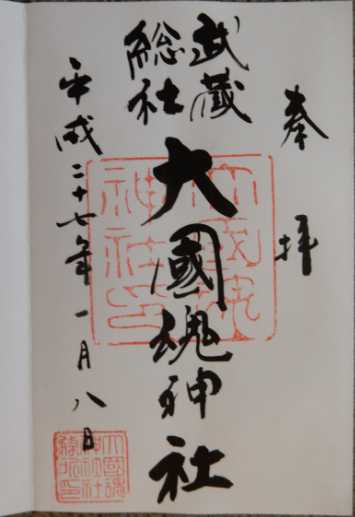 奉拝
武蔵
総社
大國魂神社
平成二十七年一月八日
大國魂
神社印